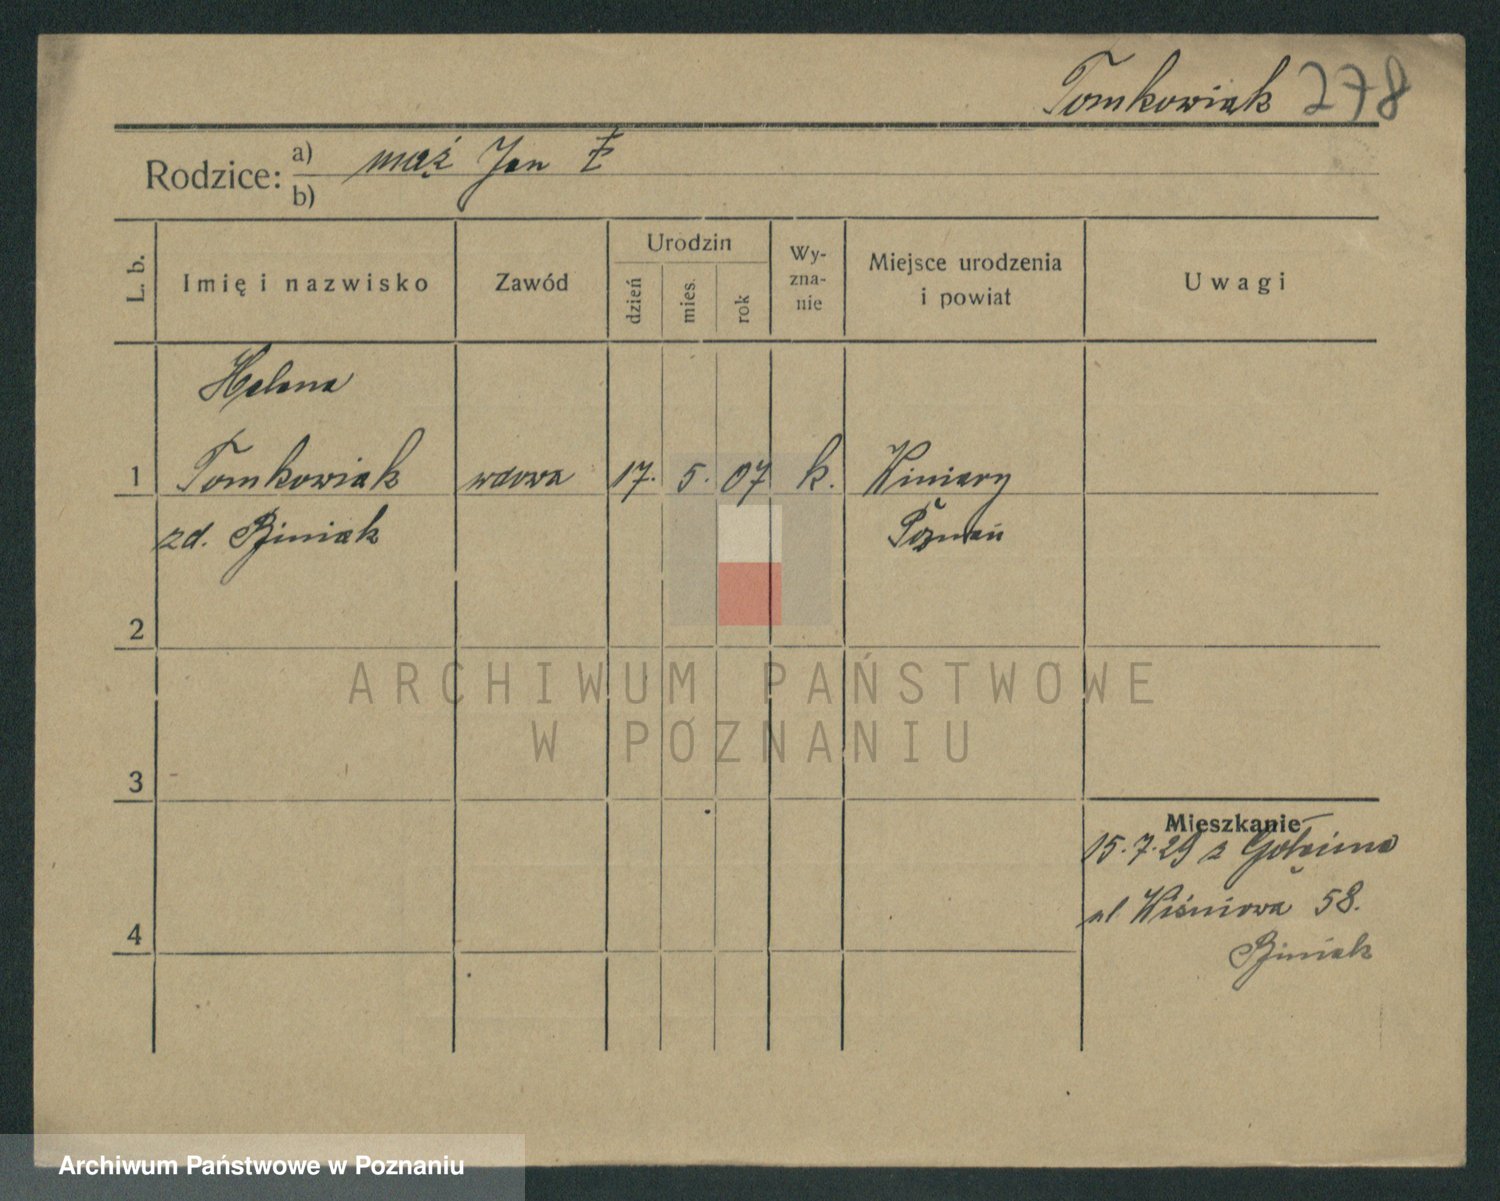 Tomkowiak 278
Rodzice: a) mąż Jan
b)
L. b.
Imię i nazwisko
Zawód
Urodzin
dzień
mies.
rok
Wy-
zna-
nie
Miejsce urodzenia
i powiat
Uwagi
Helena
1 Tomkowiak wdowa 17. 5. 07 k. Winiary
zd. Biniak Poznań
2
ARCHIWUM PAŃSTWOWE
W POZNANIU
3
Mieszkanie
15.7.29 z
4 ul. Wiśniowa 58.
Biniak
Archiwum Państwowe w Poznaniu